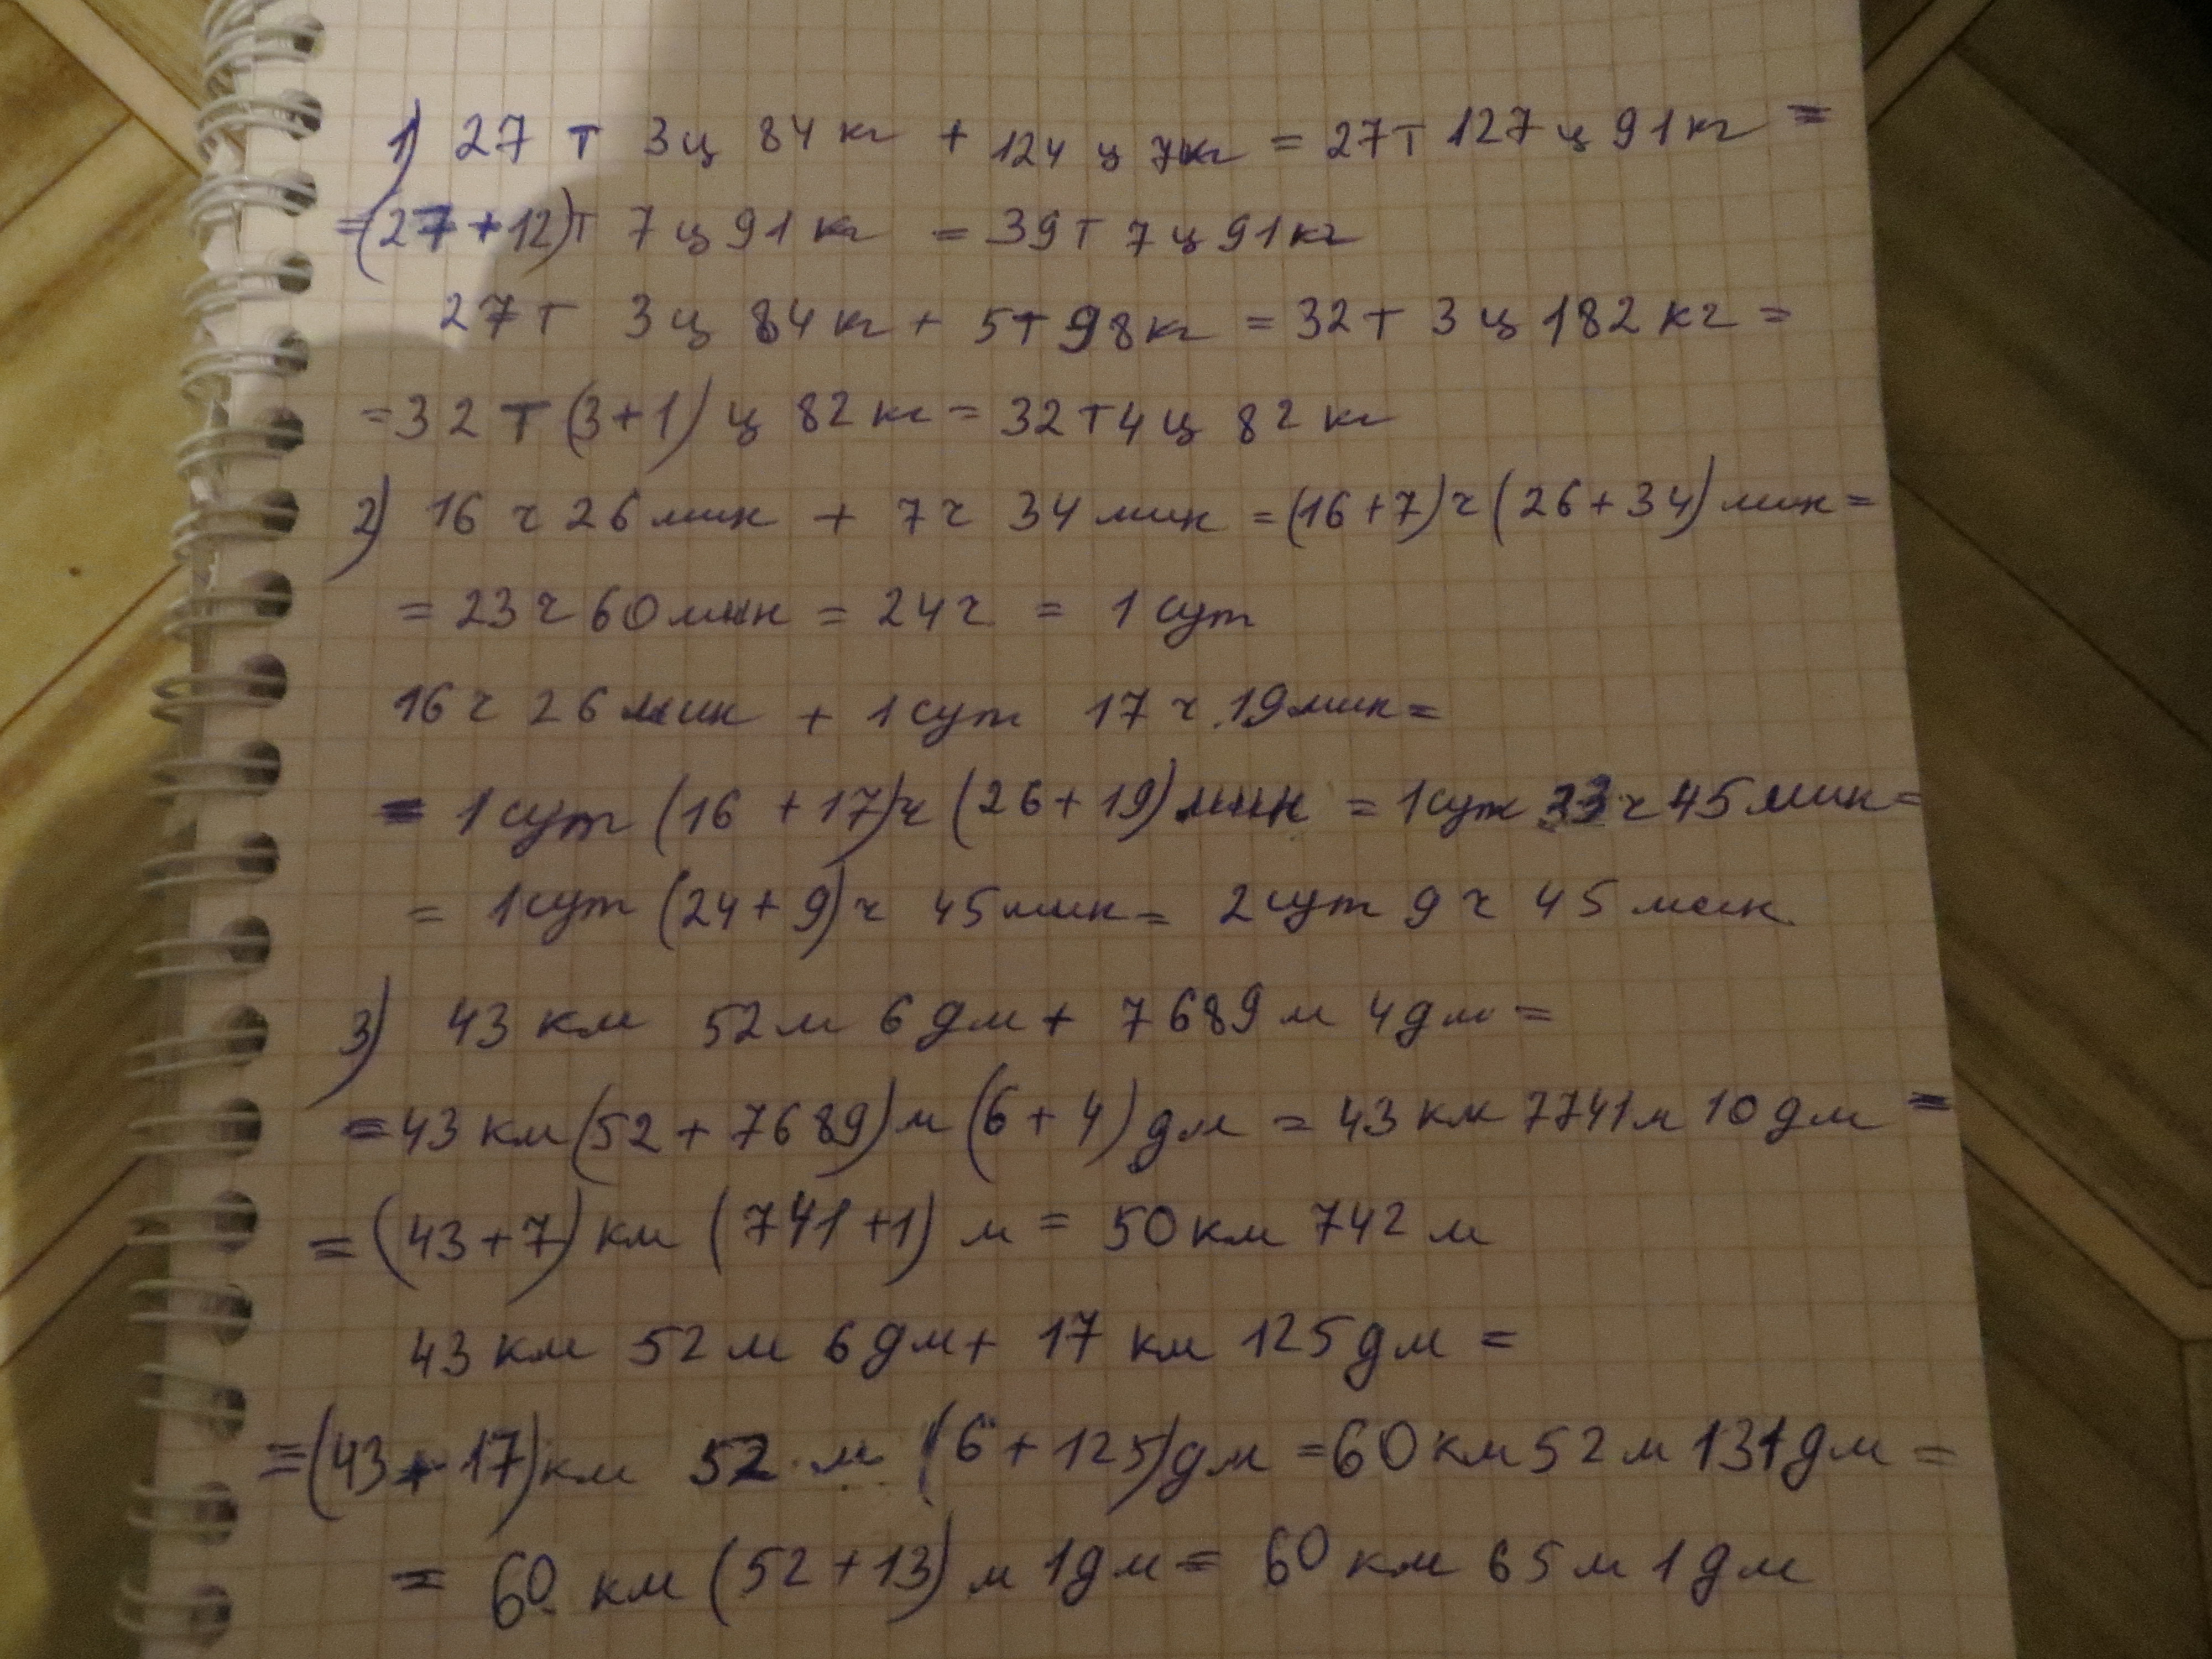 1) 27 т 3ц 84 кг + 124 ц 7кг = 27т 127 ц 91 кг =
=(27+12)т 7 ц 91 кг = 39т 7 ц 91кг
27т 3ц 84 кг + 5т 98 кг = 32т 3 ц 182 кг =
=32 т (3+1) ц 82 кг = 32т 4 ц 82 кг
2) 16 ч 26 мин + 7ч 34 мин =(16+7)ч (26+34) мин =
= 23ч 60 мин = 24ч = 1 сут
16ч 26 мин + 1 сут 17 ч 19мин =
= 1 сут (16 +17)ч (26+19) мин = 1сут 33 ч 45 мин =
= 1сут (24+9)ч 45 мин = 2 сут 9 ч 45 мин
3) 43 км 52м 6 дм + 7689 м 4дм =
=43 км (52 + 7689) м (6+4) дм = 43 км 7741м 10 дм =
= (43+7) км (741+1) м = 50 км 742 м
43 км 52 м 6 дм + 17 км 125 дм =
=(43+17)км 52 м (6+125)дм =60 км 52 м 131дм =
= 60 км (52+13) м 1дм = 60 км 65 м 1 дм